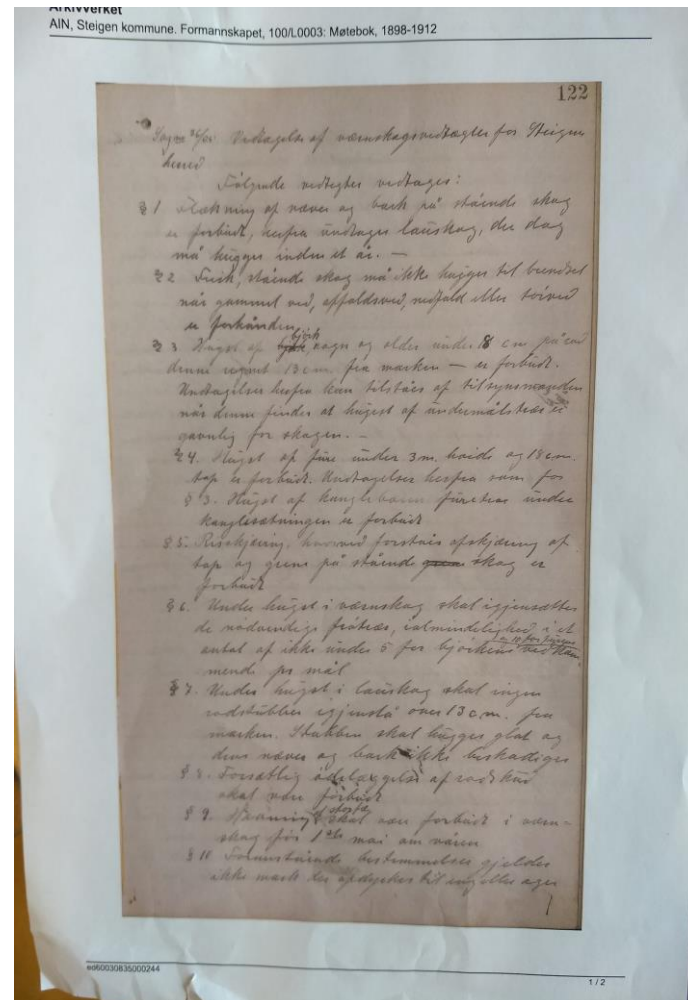 Arkivverket
AIN, Steigen kommune. Formannskapet, 100/L0003: Møtebok, 1898-1912
122
Vedtagelse af værnskogsvedtægter for Steigen
herred
Følgende vedtegter vedtages:
§ 1 Flækning af næver og bark på stående skog
er forbudt, herfra undtages lauvskog, der dog
må hugges inden et år. —
§ 2 Frisk, stående skog må ikke hugges til brændsel
når gammel ved, affaldsved, nedfald eller tørved
er forhånden
§ 3 Hugst af bjørk, rogn og older under 18 cm. på rod
denne regnet 13 cm. fra marken — er forbudt.
Undtagelser herfra kan tilståes af tilsynsmanden
når denne finder at hugst af undermålstræs er
gavnlig for skogen. —
§ 4. Hugst af furu under 3 m. høide og 18 cm.
top er forbudt. Undtagelser herfra som for
§ 3. Hugst af konglebærende furetræs under
konglesætningen er forbudt
§ 5. Risskjæring, hvorved forstaaes afskjæring af
top og grene på stående skog er
forbudt
§ 6. Under hugst i værnskog skal igjensættes
de nødvendige frøtræs, i almindelighed i et
antal af ikke under 5 for bjørkens vedkom-
og 10 for furuens
mende pr mål
§ 7. Under hugst i lauvskog skal ingen
rodstubber igjenstå over 13 cm. fra
marken. Stubben skal hugges glat og
dens næver og bark ikke beskadiges
§ 8. Forsætlig ødelæggelse af rodskud
skal være forbudt
§ 9. skal være forbudt i værn-
skog før 1ste mai om våren
§ 10 Foranstående bestemmelser gjelder
ikke mark der opdyrkes til eng eller ager
ed60030835000244
1 / 2